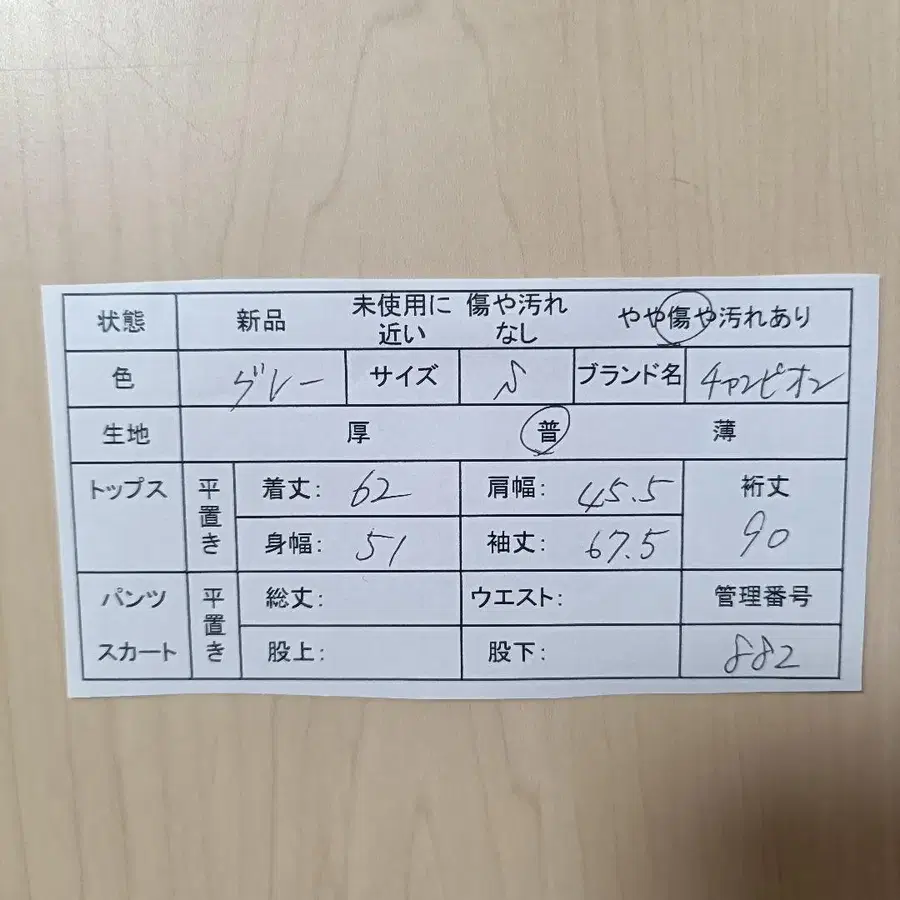 状態 新品 未使用に近い 傷や汚れなし やや傷や汚れあり
色 グレー サイズ S ブランド名 チャンピオン
生地 厚 普 薄
トップス 平置き 着丈: 62 肩幅: 45.5 裄丈
身幅: 51 袖丈: 67.5 90
パンツ 平置き 総丈: ウエスト: 管理番号
スカート 股上: 股下: 882